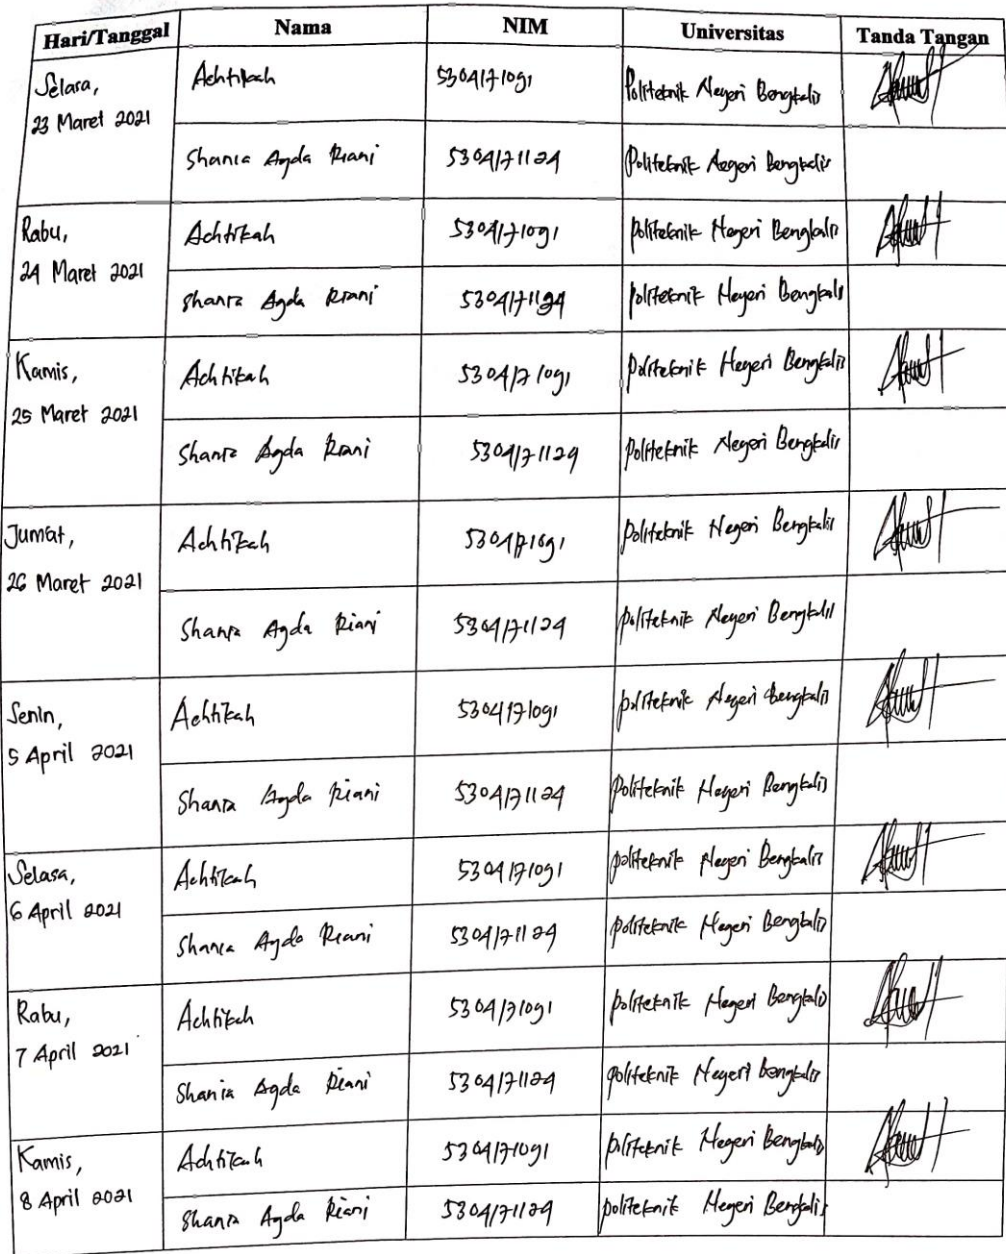 Hari/Tanggal Nama NIM Universitas Tanda Tangan
Selasa, Achtikah 5304171091 Politeknik Negeri Bengkalis
23 Maret 2021
Shania Agda Riani 5304171124 Politeknik Negeri Bengkalis
Rabu, Achtikah 5304171091 Politeknik Negeri Bengkalis
24 Maret 2021
Shania Agda Riani 5304171124 Politeknik Negeri Bengkalis
Kamis, Achtikah 5304171091 Politeknik Negeri Bengkalis
25 Maret 2021
Shania Agda Riani 5304171124 Politeknik Negeri Bengkalis
Jum'at, Achtikah 5304171091 Politeknik Negeri Bengkalis
26 Maret 2021
Shania Agda Riani 5304171124 Politeknik Negeri Bengkalis
Senin, Achtikah 5304171091 Politeknik Negeri Bengkalis
5 April 2021
Shania Agda Riani 5304171124 Politeknik Negeri Bengkalis
Selasa, Achtikah 5304171091 politeknik Negeri Bengkalis
6 April 2021
Shania Agda Riani 5304171124 politeknik Negeri Bengkalis
Rabu, Achtikah 5304171091 politeknik Negeri Bengkalis
7 April 2021
Shania Agda Riani 5304171124 politeknik Negeri Bengkalis
Kamis, Achtikah 5304171091 politeknik Negeri Bengkalis
8 April 2021
Shania Agda Riani 5304171124 politeknik Negeri Bengkalis